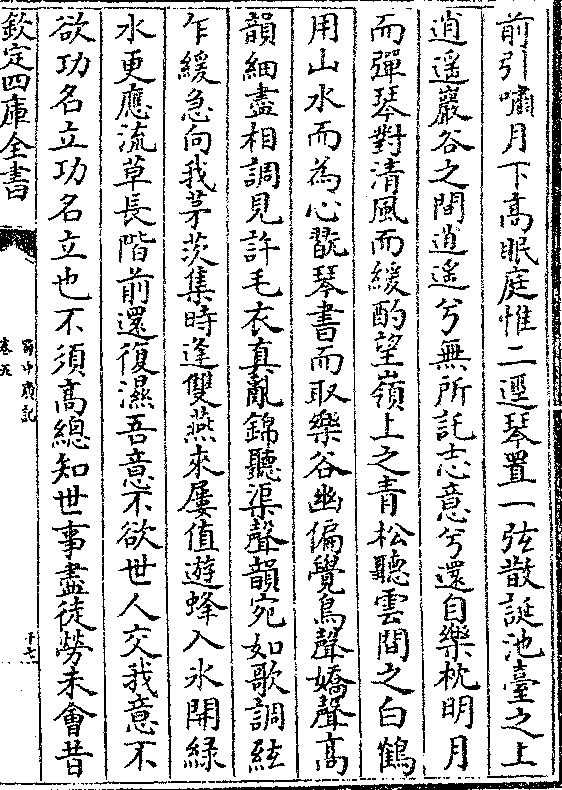 前引嘯月下高眠庭惟二逕琴置一弦散誕池臺之上
逍遥巖谷之間逍遥兮無所託志意兮還自樂枕明月
而彈琴對清風而緩酌望嶺上之青松聽雲間之白鶴
用山水而為心翫琴書而取樂谷幽偏覺鳥聲嬌聲髙
韻細盡相調見許毛衣真亂錦聽渠聲韻宛如歌調絃
乍緩急向我茅茨集時逢雙燕來屢值遊蜂入氷開緑
水更應流草長階前還復濕吾意不欲世人交我意不
欲功名立功名立也不須髙總知世事盡徒勞未會昔
欽定四庫全書
蜀中廣記
卷五
十七